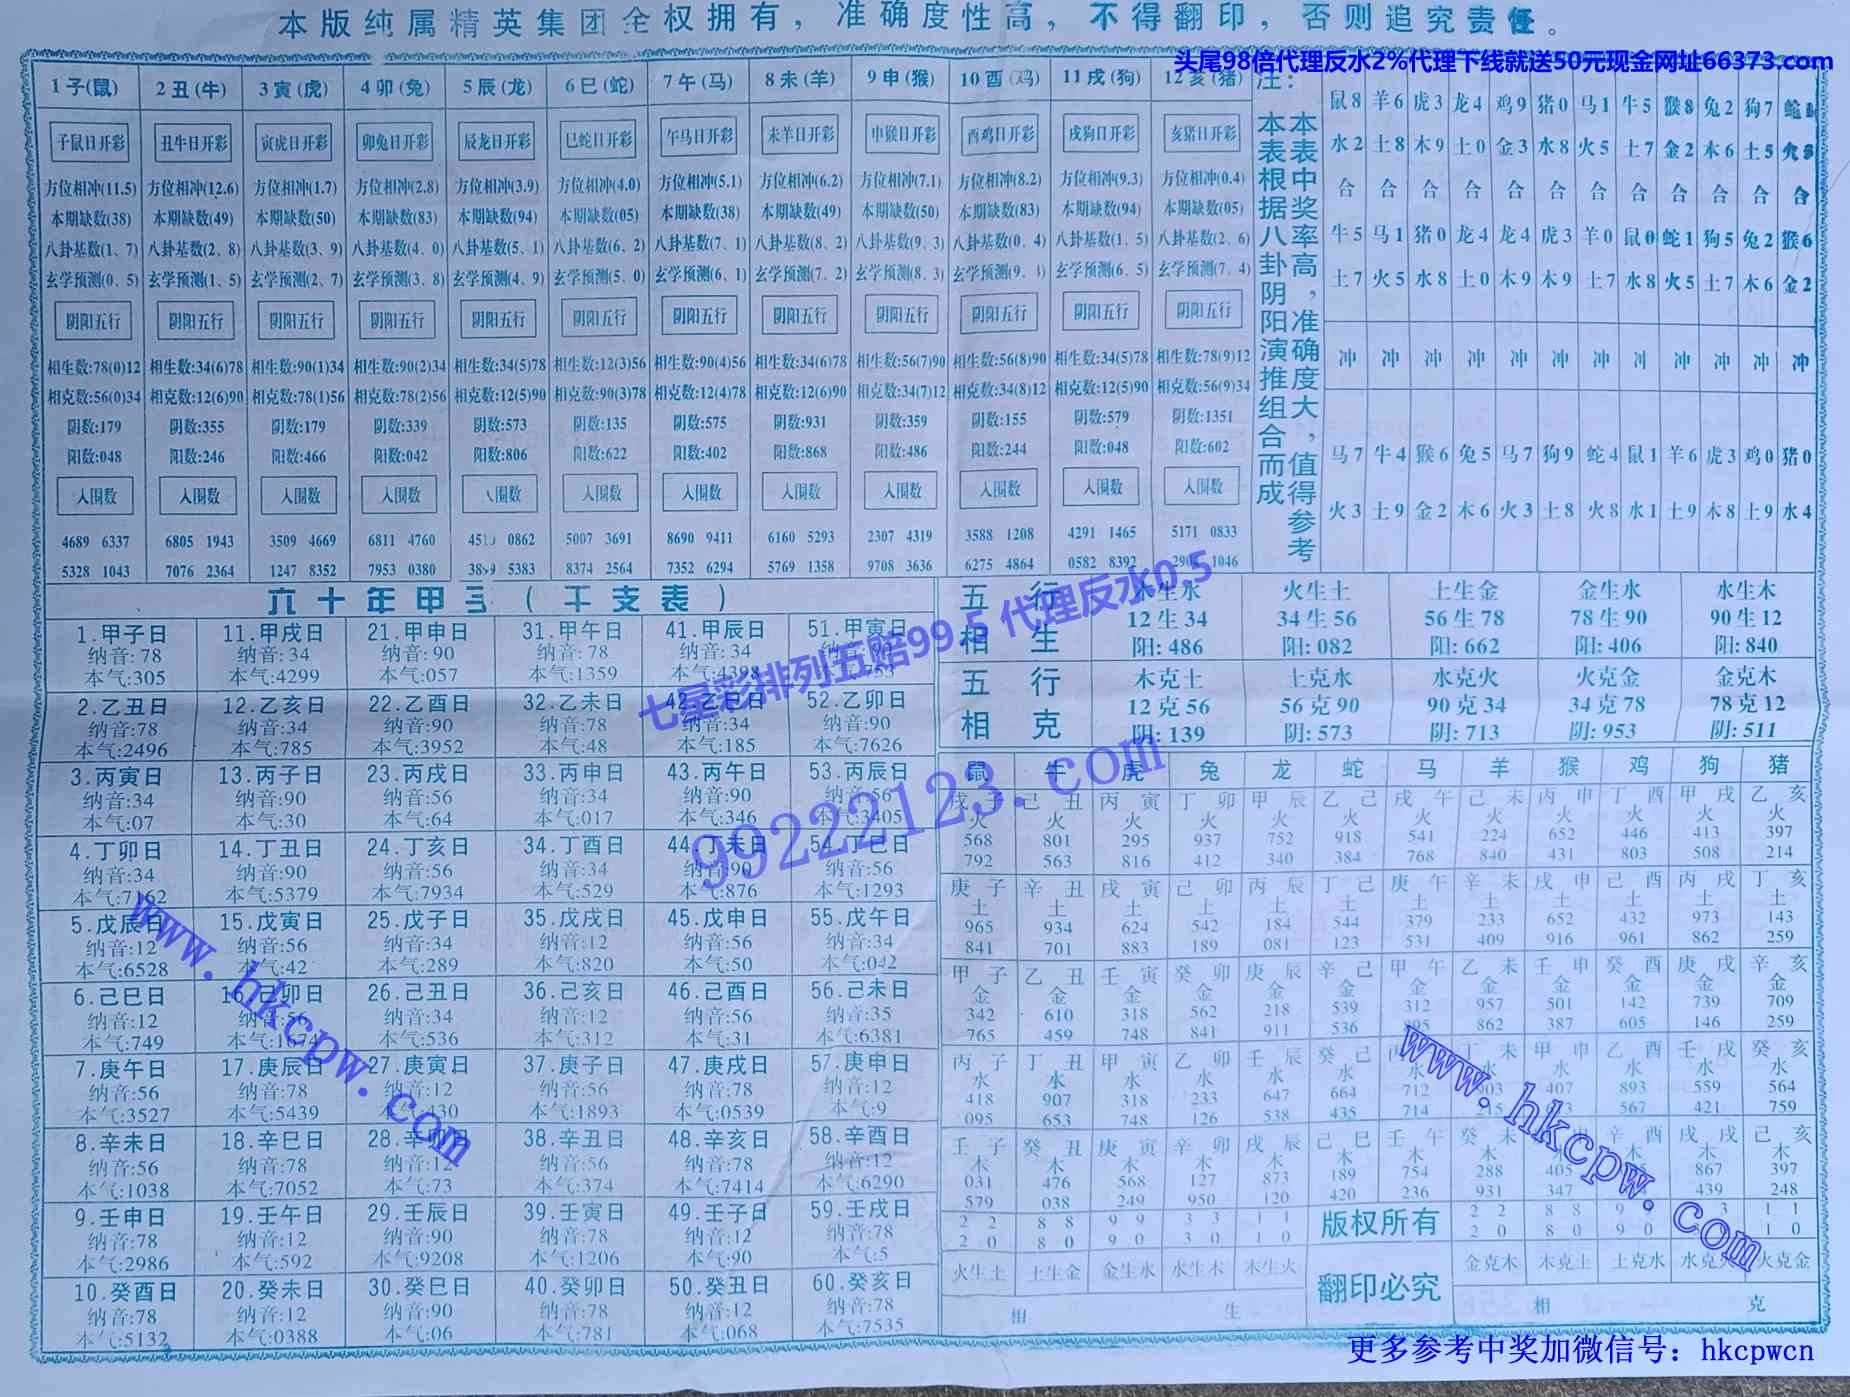 本版纯属精英集团全权拥有，准确度性高，不得翻印，否则追究责任。
头尾98倍代理反水2%代理下线就送50元现金网址66373.com
1子(鼠) 2丑(牛) 3寅(虎) 4卯(兔) 5辰(龙) 6巳(蛇) 7午(马) 8未(羊) 9申(猴) 10酉(鸡) 11戌(狗) 12亥(猪)
子鼠日开彩 丑牛日开彩 寅虎日开彩 卯兔日开彩 辰龙日开彩 巳蛇日开彩 午马日开彩 未羊日开彩 申猴日开彩 酉鸡日开彩 戌狗日开彩 亥猪日开彩
方位相冲(11.5) 方位相冲(12.6) 方位相冲(1.7) 方位相冲(2.8) 方位相冲(3.9) 方位相冲(4.0) 方位相冲(5.1) 方位相冲(6.2) 方位相冲(7.1) 方位相冲(8.2) 方位相冲(9.3) 方位相冲(0.4)
本期缺数(38) 本期缺数(49) 本期缺数(50) 本期缺数(83) 本期缺数(94) 本期缺数(05) 本期缺数(38) 本期缺数(49) 本期缺数(50) 本期缺数(83) 本期缺数(94) 本期缺数(05)
八卦基数(1、7) 八卦基数(2、8) 八卦基数(3、9) 八卦基数(4、0) 八卦基数(5、1) 八卦基数(6、2) 八卦基数(7、1) 八卦基数(8、2) 八卦基数(9、3) 八卦基数(0、4) 八卦基数(1、5) 八卦基数(2、6)
玄学预测(0、5) 玄学预测(1、5) 玄学预测(2、7) 玄学预测(3、8) 玄学预测(4、9) 玄学预测(5、0) 玄学预测(6、1) 玄学预测(7、2) 玄学预测(8、3) 玄学预测(9、 玄学预测(6、5) 玄学预测(7、4)
阴阳五行 阴阳五行 阴阳五行 阴阳五行 阴阳五行 阴阳五行 阴阳五行 阴阳五行 阴阳五行 阴阳五行 阴阳五行 阴阳五行
相生数:78(0)12 相生数:34(6)78 相生数:90(1)34 相生数:90(2)34 相生数:34(5)78 相生数:12(3)56 相生数:90(4)56 相生数:34(6)78 相生数:56(7)90 相生数:56(8)90 相生数:34(5)78 相生数:78(9)12
相克数:56(0)34 相克数:12(6)90 相克数:78(1)56 相克数:78(2)56 相克数:12(5)90 相克数:90(3)78 相克数:12(4)78 相克数:12(6)90 相克数:34(7)12 相克数:34(8)12 相克数:12(5)90 相克数:56(9)34
阴数:179 阴数:355 阴数:179 阴数:339 阴数:573 阴数:135 阴数:575 阴数:931 阴数:359 阴数:155 阴数:579 阴数:1351
阳数:048 阳数:246 阳数:466 阳数:042 阳数:806 阳数:622 阳数:402 阳数:868 阳数:486 阳数:244 阳数:048 阳数:602
入围数 入围数 入围数 入围数 入围数 入围数 入围数 入围数 入围数 入围数 入围数 入围数
4689 6337 6805 1943 3509 4669 6811 4760 0862 5007 3691 8690 9411 6160 5293 2307 4319 3588 1208 4291 1465 5171 0833
5328 1043 7076 2364 1247 8352 7953 0380 5383 8374 2564 7352 6294 5769 1358 9708 3636 6275 4864 0582 8392 1046
注：
本表中奖率高，准确度大，值得参考
本表根据八卦阴阳演推组合而成
鼠8 羊6 虎3 龙4 鸡9 猪0 马1 牛5 猴8 兔2 狗7
水2 土8 木9 土0 金3 水8 火5 土7 金2 木6 土5
合 合 合 合 合 合 合 合 合 合 合 合
牛5 马1 猪0 龙4 龙4 虎3 羊0 鼠0 蛇1 狗5 兔2 猴6
土7 火5 水8 土0 木9 木9 土7 水8 火5 土7 木6 金2
冲 冲 冲 冲 冲 冲 冲 冲 冲 冲 冲 冲
马7 牛4 猴6 兔5 马7 狗9 蛇4 鼠1 羊6 虎3 鸡0 猪0
火3 土9 金2 木6 火3 土8 火8 水1 土9 木8 土9 水4
六十年甲子(干支表)
1.甲子日 11.甲戌日 21.甲申日 31.甲午日 41.甲辰日 51.甲寅日
纳音:78 纳音:34 纳音:90 纳音:78 纳音:34 纳音:
本气:305 本气:4299 本气:057 本气:1359 本气:4398
2.乙丑日 12.乙亥日 22.乙酉日 32.乙未日 42.乙巳日 52.乙卯日
纳音:78 纳音:34 纳音:90 纳音:78 纳音:34 纳音:90
本气:2496 本气:785 本气:3952 本气:48 本气:185 本气:7626
3.丙寅日 13.丙子日 23.丙戌日 33.丙申日 43.丙午日 53.丙辰日
纳音:34 纳音:90 纳音:56 纳音:34 纳音:90 纳音:56
本气:07 本气:30 本气:64 本气:017 本气:346 本气:3405
4.丁卯日 14.丁丑日 24.丁亥日 34.丁酉日 44.丁未日 54.丁巳日
纳音:34 纳音:90 纳音:56 纳音:34 纳音:90 纳音:56
本气:7162 本气:5379 本气:7934 本气:529 本气:876 本气:1293
5.戊辰日 15.戊寅日 25.戊子日 35.戊戌日 45.戊申日 55.戊午日
纳音:12 纳音:56 纳音:34 纳音:12 纳音:56 纳音:34
本气:6528 本气:42 本气:289 本气:820 本气:50 本气:042
6.己巳日 16.己卯日 26.己丑日 36.己亥日 46.己酉日 56.己未日
纳音:12 纳音:56 纳音:34 纳音:12 纳音:56 纳音:35
本气:749 本气:1674 本气:536 本气:312 本气:31 本气:6381
7.庚午日 17.庚辰日 27.庚寅日 37.庚子日 47.庚戌日 57.庚申日
纳音:56 纳音:78 纳音:12 纳音:56 纳音:78 纳音:12
本气:3527 本气:5439 本气: 本气:1893 本气:0539 本气:9
8.辛未日 18.辛巳日 28.辛卯日 38.辛丑日 48.辛亥日 58.辛酉日
纳音:56 纳音:78 纳音:12 纳音:56 纳音:78 纳音:12
本气:1038 本气:7052 本气:73 本气:374 本气:7414 本气:6290
9.壬申日 19.壬午日 29.壬辰日 39.壬寅日 49.壬子日 59.壬戌日
纳音:78 纳音:12 纳音:90 纳音:78 纳音:12 纳音:78
本气:2986 本气:592 本气:9208 本气:1206 本气:90 本气:5
10.癸酉日 20.癸未日 30.癸巳日 40.癸卯日 50.癸丑日 60.癸亥日
纳音:78 纳音:12 纳音:90 纳音:78 纳音:12 纳音:78
本气:5132 本气:0388 本气:06 本气:781 本气:068 本气:7535
五行相生
木生水 火生土 土生金 金生水 水生木
12生34 34生56 56生78 78生90 90生12
阳:486 阳:082 阳:662 阳:406 阳:840
五行相克
木克土 土克水 水克火 火克金 金克木
12克56 56克90 90克34 34克78 78克12
阴:139 阴:573 阴:713 阴:953 阴:511
鼠 牛 虎 兔 龙 蛇 马 羊 猴 鸡 狗 猪
戊子 己丑 丙寅 丁卯 甲辰 乙己 戌午 己未 丙申 丁酉 甲戌 乙亥
火 火 火 火 火 火 火 火 火 火 火 火
568 801 295 937 752 918 541 224 652 446 413 397
792 563 816 412 340 384 768 840 431 803 508 214
庚子 辛丑 戌寅 己卯 丙辰 丁己 庚午 辛未 戌申 己酉 丙戌 丁亥
土 土 土 土 土 土 土 土 土 土 土 土
965 934 624 542 184 544 379 233 652 432 973 143
841 701 883 189 081 123 531 409 916 961 862 259
甲子 乙丑 壬寅 癸卯 庚辰 辛己 甲午 乙未 壬申 癸酉 庚戌 辛亥
金 金 金 金 金 金 金 金 金 金 金 金
342 610 318 562 218 539 312 957 501 142 739 709
765 459 748 841 911 536 862 387 605 146 259
丙子 丁丑 甲寅 乙卯 壬辰 癸己 丙 丁未 甲申 乙酉 壬戌 癸亥
水 水 水 水 水 水 水 水 水 水 水
418 907 318 233 647 664 712 407 893 559 564
095 653 748 126 538 435 714 567 421 759
壬子 癸丑 庚寅 辛卯 戌辰 己巳 壬午 癸未 辛酉 戌戌 己亥
木 木 木 木 木 木 木 木 木 木
031 476 568 127 873 189 754 288 405 867 397
579 038 249 950 120 420 236 931 347 439 248
2 2 8 8 9 9 3 3 1 1 版权所有 2 2 8 8 9 3 1 1
2 0 8 0 9 0 3 0 1 0 2 0 8 0 9 0 1 0
火生土 土生金 金生水 水生木 木生火 翻印必究 金克木 木克土 土克水 水克火 火克金
相 生 相 克
七星彩排列五赔99.5 代理反水0.5
99222123.com
www.hkcpw.com
www.hkcpw.com
更多参考中奖加微信号：hkcpwcn